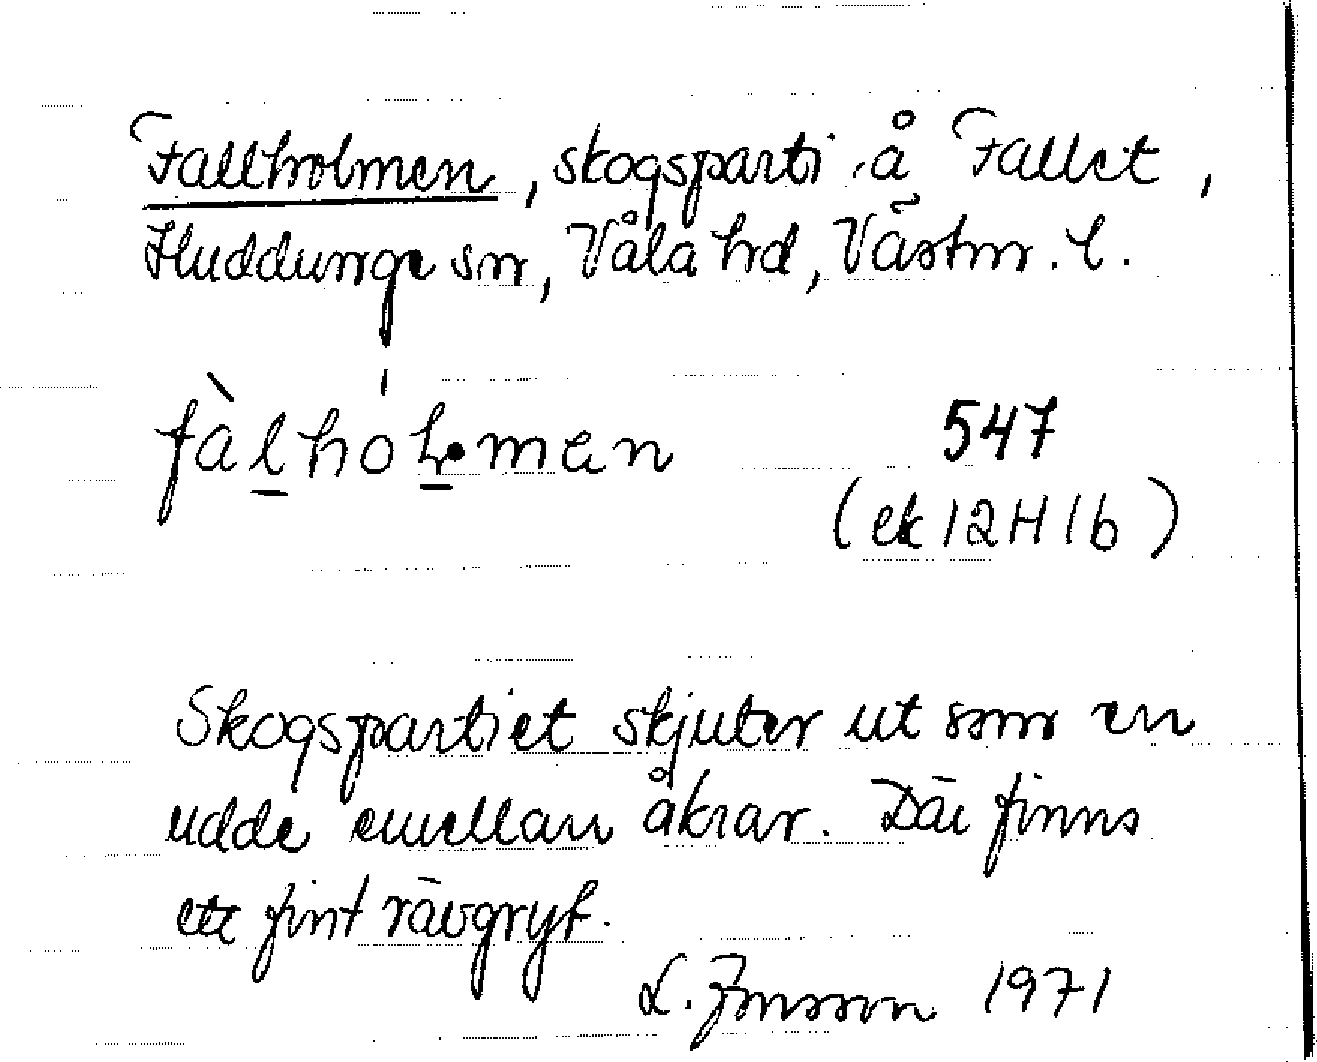 Fallholmen, skogsparti å Fallet,
Huddunge sn, Våla hd, Västm. l.
fàlhol·men
547
(ek 12H 1b)
Skogspartiet skjuter ut som en
udde emellan åkrar. Där finns
ett fint rävgryt.
L. Jonsson 1971